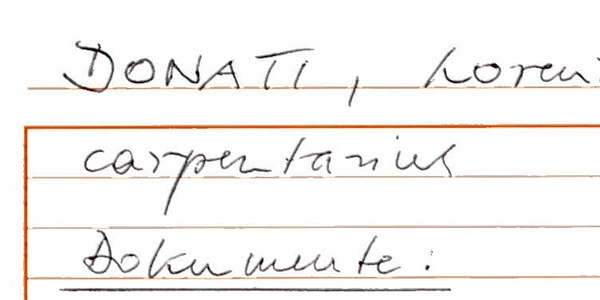 DONATI, Loren
carpentarius
Dokumente: